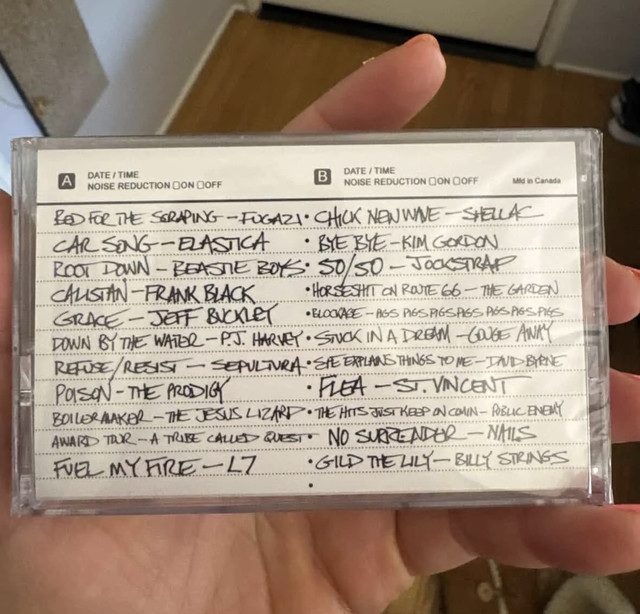 A DATE / TIME
NOISE REDUCTION ☐ON ☐OFF
BED FOR THE SCRAPING - FUGAZI
CAR SONG - ELASTICA
ROOT DOWN - BEASTIE BOYS
CALISTAN - FRANK BLACK
GRACE - JEFF BUCKLEY
DOWN BY THE WATER - P.J. HARVEY
REFUSE/RESIST - SEPULTURA
POISON - THE PRODIGY
BOILERMAKER - THE JESUS LIZARD
AWARD TOUR - A TRIBE CALLED QUEST
FUEL MY FIRE - L7
B DATE / TIME
NOISE REDUCTION ☐ON ☐OFF
Mfd in Canada
• CHICK NEW WAVE - SHELLAC
• BYE BYE - KIM GORDON
• 50/50 - JOCKSTRAP
• HORSESHIT ON ROUTE 66 - THE GARDEN
• BLOCKAGE - PIGS PIGS PIGS PIGS PIGS PIGS PIGS
• STUCK IN A DREAM - GOUGE AWAY
• SHE EXPLAINS THINGS TO ME - DAVID BYRNE
• FLEA - ST. VINCENT
• THE HITS JUST KEEP ON COMIN - PUBLIC ENEMY
• NO SURRENDER - NAILS
• GILD THE LILY - BILLY STRINGS